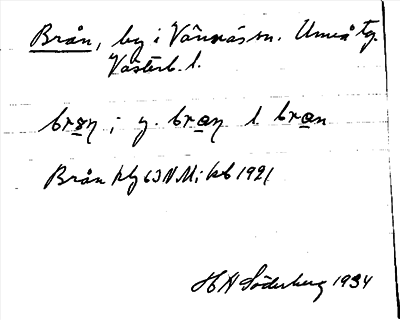 Brån, by i Vännäs sn. Umeå tg.
Västerb. l.
brøn ; y. bran l bran
Brån kby 63 NM; kb 1921
H A Söderberg 1934